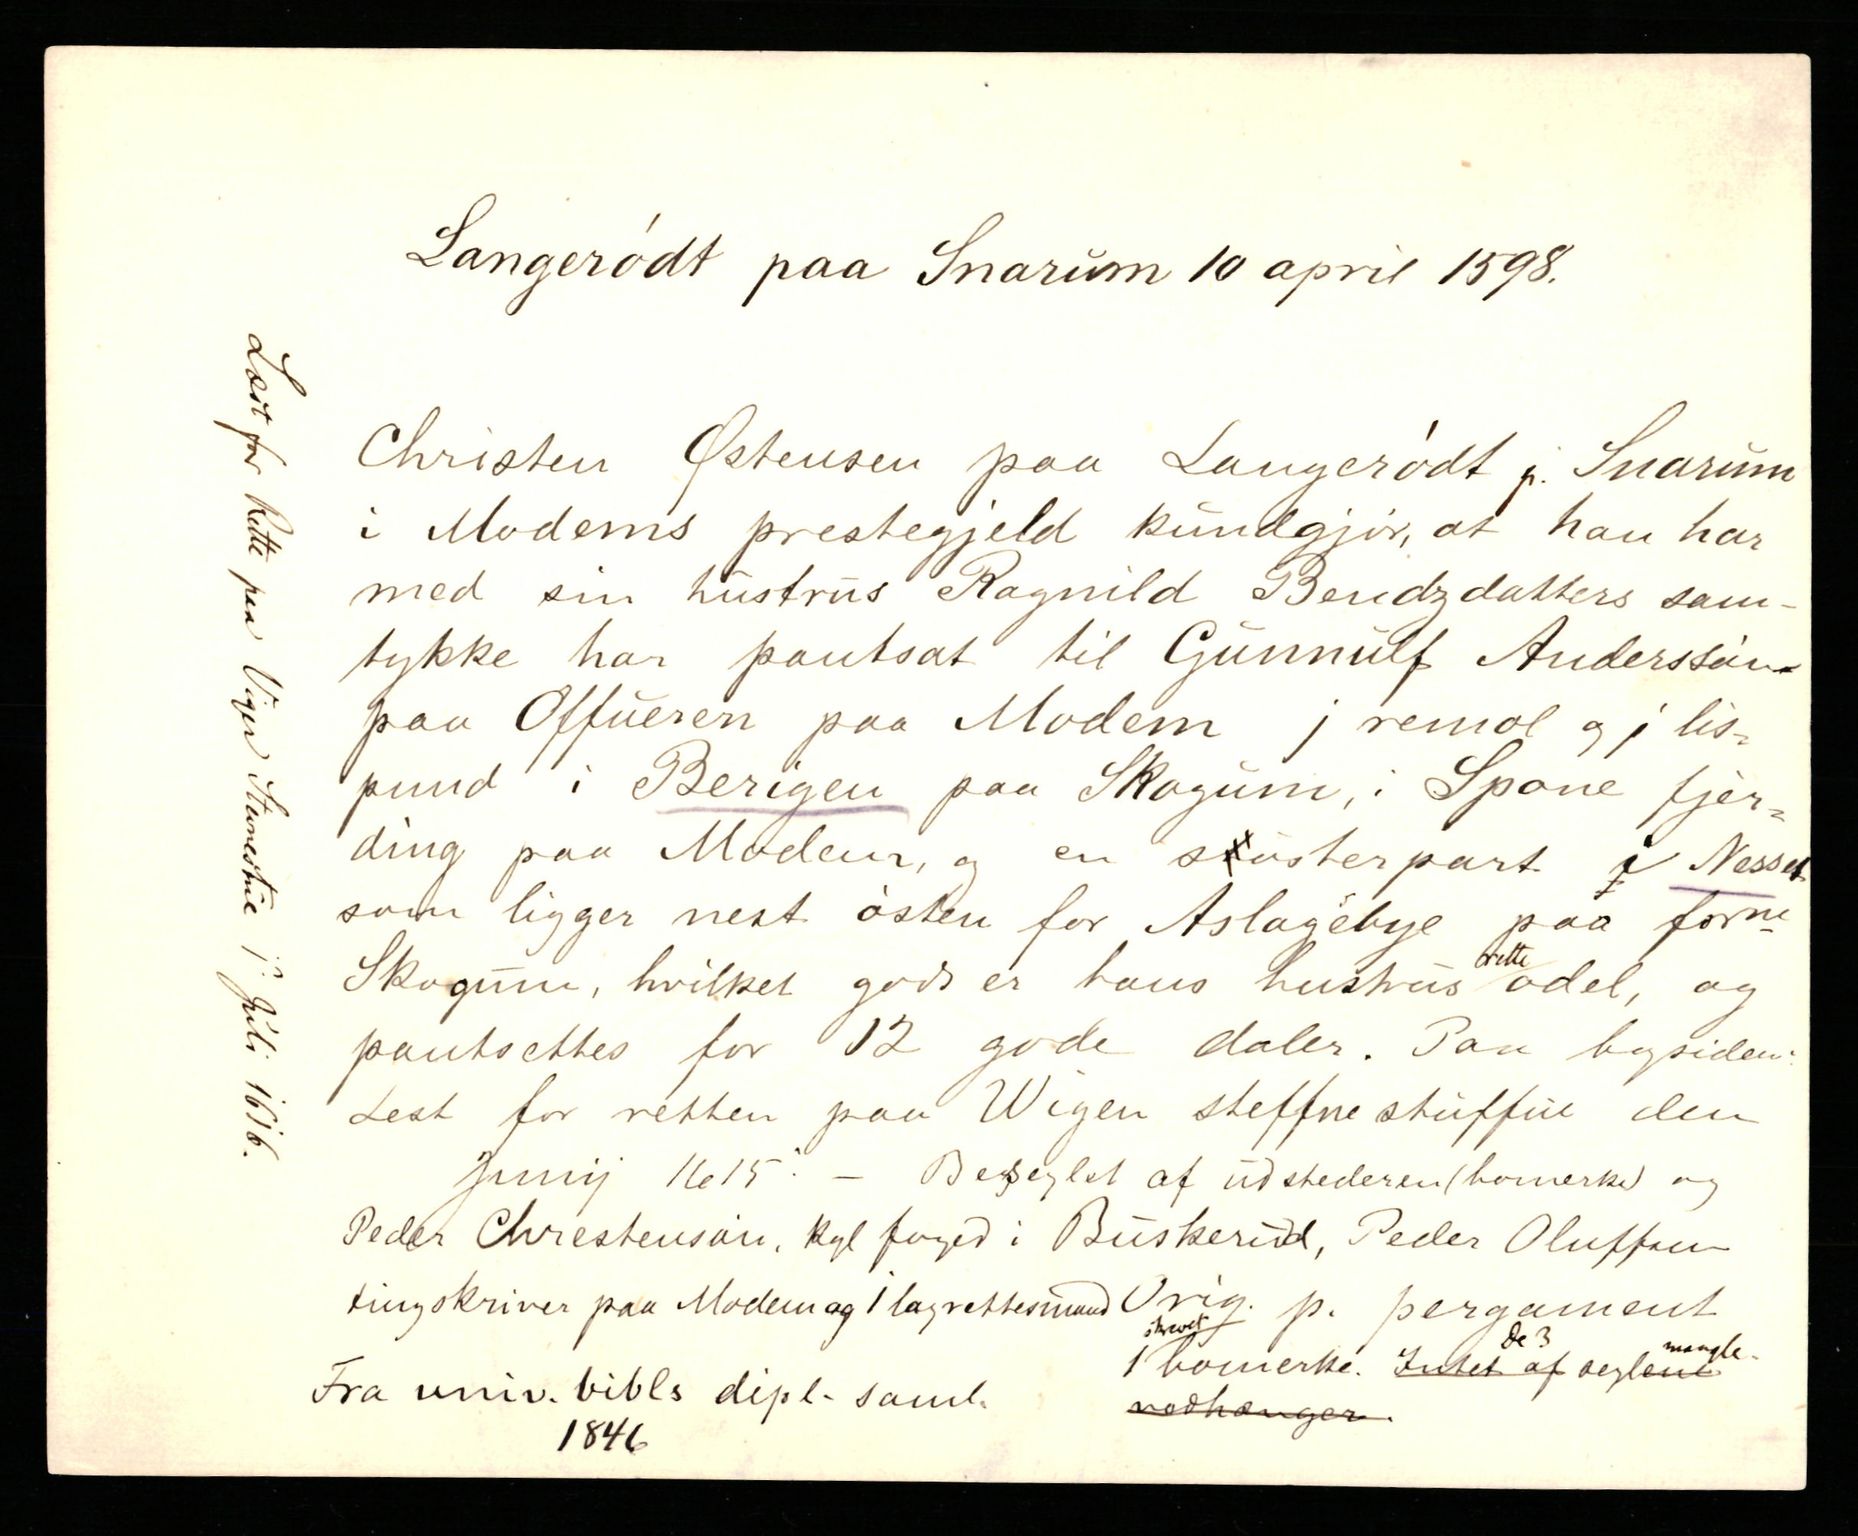 Langeródt paa Snarum 10 april 1598.
Christen Østensen paa Langeródt p. Snarum
i Modems prestegjeld kundgjör, at han har
med sin hustrus Ragnild Bendzdatters sam-
tykke har pantsat til Gunnulf Anderssön
paa Offueren paa Modem j remol og j lis-
pund i Berigen paa Skogum, i Spone fjer-
ding paa Modem, og en söster part i Nesset
som ligger nest östen for Aslagebye paa forne
Skogum, hvilket gods er hans hustrus rette odel, og
pantsettes for 12 gode daler. Paa bagsiden:
Lest for retten paa Wigen steffnestuffue den
Junij 1615. — Beseglet af udstederen (bomerke) og
Peder Chrestensön, kgl foged i Buskerud, Peder Oluffsen
tingskriver paa Modem og 1 lagrettesmand Orig. p. pergament
1 skrevet bomerke. Intet af De 3 seglene mangle.
vedhænger.
Fra univ. bibls dipl. saml.
1846
Læst for Rette paa Vigen Steuestue j Juli 1616.